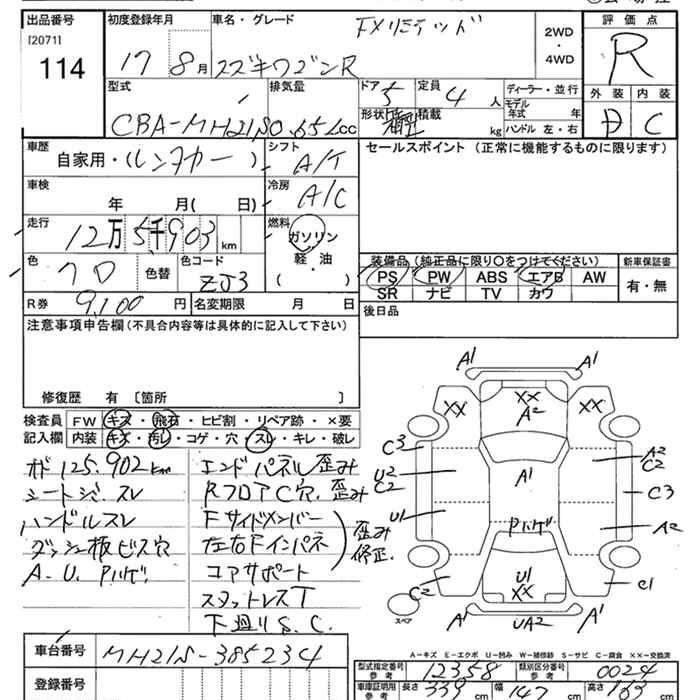 出品番号 初度登録年月 車名・グレード 評価点
[2071] FXリミテッド 2WD
・
4WD
114 17 8月 スズキワゴンR R
外装 内装
型式 排気量 ドア 5 定員 4人 ディーラー・並行
モデル年式 年
CBA-MH21S 0.65Lcc 形状 積載 kg ハンドル 左・右 D C
車歴 シフト セールスポイント（正常に機能するものに限ります）
自家用・(レンタカー) A/T
車検 冷房
年 月( 日) A/C
走行 燃料
12万5千903km ガソリン
軽・油
・
( )
装備品（純正品に限り○をつけてください） 新車保証書
色 クロ 色替 色コード ZJ3
PS PW ABS エアB AW 有・無
SR ナビ TV カワ
R券 9,100円 名変期限 月 日
後日品
注意事項申告欄（不具合内容等は具体的に記入して下さい）
修復歴 有〔箇所 〕
検査員 FW キズ・飛石・ヒビ割・リペア跡・×要
記入欄 内装 キズ・汚レ・コゲ・穴・スレ・キレ・破レ
オド125.902km エンドパネル歪み
シートシミ.スレ RフロアC穴.歪み
ハンドルスレ Fサイドメンバー
ダッシュ板ビス穴 左右Fインパネ 歪み
修正.
A.U.Pハゲ コアサポート
スタットレスT
下廻りS.C.
A1 A1
XX XX A2 XX
C3 A2 C2
U2 C2 A1 C3
U1 Pハゲ A2
C2 U1 XX C1
スペア A1 UA2 A1
A－キズ E－エクボ U－凹み W－補修跡 S－サビ C－腐食 XX－交換済
車台番号 MH21S-385234
型式指定番号 参考 12358 類別区分番号 参考 0024
登録番号
車庫証明用 参考 長さ 339cm 幅 147cm 高さ 163cm